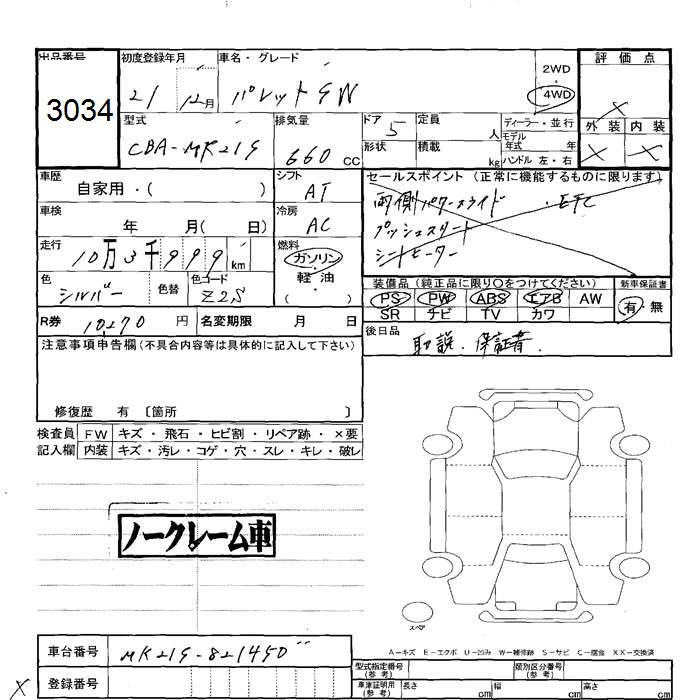 出品番号 初度登録年月 車名・グレード 評価点
3034 21 12月 パレットSW 2WD 4WD ×
型式 排気量 ドア 定員 ディーラー・並行 外装 内装
CBA-MK21S 660 CC 5 人 モデル年式 年式 × ×
形状 積載 kg ハンドル 左・右
車歴 シフト セールスポイント(正常に機能するものに限ります)
自家用・( ) AT 両側パワースライド ・ETC
車検 冷房 プッシュスタート
年 月( 日) AC シートヒーター
走行 燃料
10万3千999 km ガソリン
軽・油
( )
色 色替 色コード 装備品(純正品に限り○をつけてください) 新車保証書
シルバー Z2S PS PW ABS エアB AW 有・無
SR ナビ TV カワ
R券 10,270 円 名変期限 月 日 後日品
取説.保証書.
注意事項申告欄(不具合内容等は具体的に記入して下さい)
修復歴 有 〔箇所 〕
検査員 FW キズ・飛石・ヒビ割・リペア跡・×要
記入欄 内装 キズ・汚レ・コゲ・穴・スレ・キレ・破レ
ノークレーム車
スペア
A-キズ E-エクボ U-凹み W-補修跡 S-サビ C-腐食 XX-交換済
車台番号 MK21S-821450
型式指定番号(参考) 類別区分番号(参考)
× 登録番号 車庫証明用(参考) 長さ cm 幅 cm 高さ cm